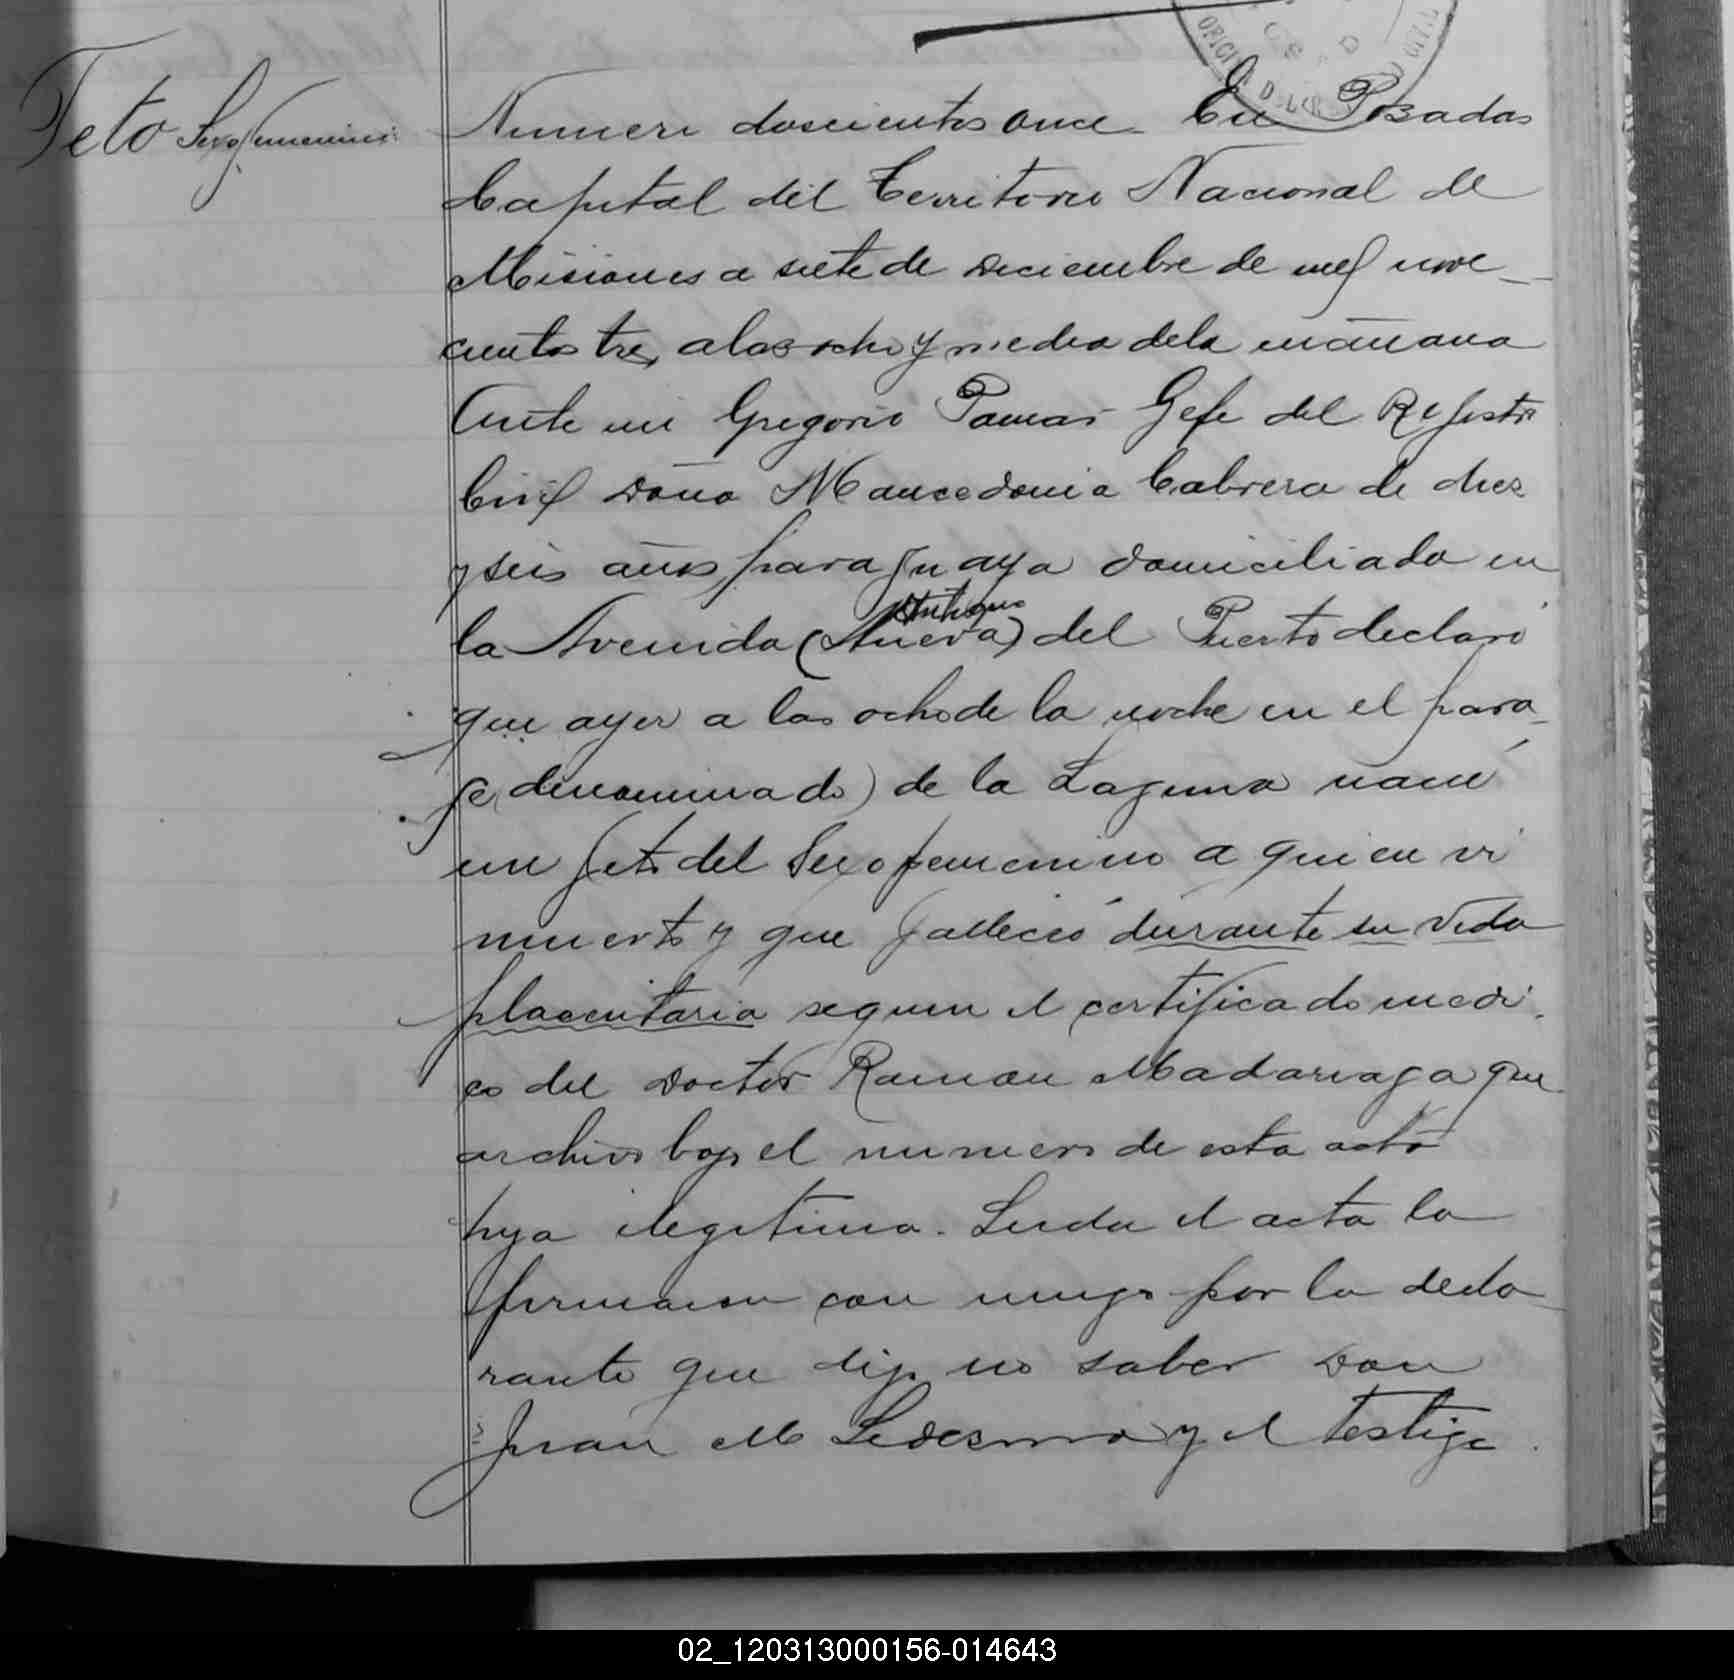 Feto Sexo femenino
Numero doscientos once En Posadas
Capital del Territorio Nacional de
Misiones a siete de Diciembre de mil nove
cientos tres a las ocho y media dela mañana
Ante mi Gregorio Pamas Gefe del Rejistro
Civil Doña Mancedonia Cabrera de diez
y seis años paraguaya domiciliada en
Antiguo
la Avenida (Nueva) del Puerto declaró
que ayer a las ocho de la noche en el para
je (denominado) de la Laguna nació
un feto del Sexo femenino a quien vi
muerto y que falleció durante su vida
placentaria segun el certificado medi
co del Doctor Ramon Madariaga que
archivo bajo el numero de esta acta
hija ilegitima. Leida el acta la
firmaron con migo por la decla
rante que dijo no saber Don
Juan M Ledesma y el testigo
02_120313000156-014643